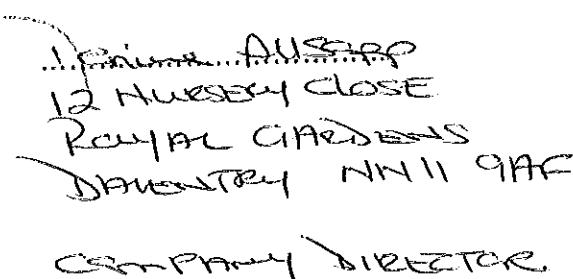 ALLSOPP
12 NURSERY CLOSE
ROYAL GARDENS
DAVENTRY NN11 9AF
COMPANY DIRECTOR.